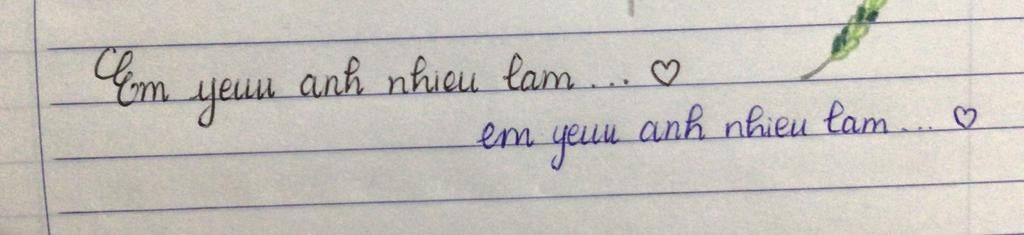 Em yeuu anh nhieu lam... ♡
em yeuu anh nhieu lam... ♡